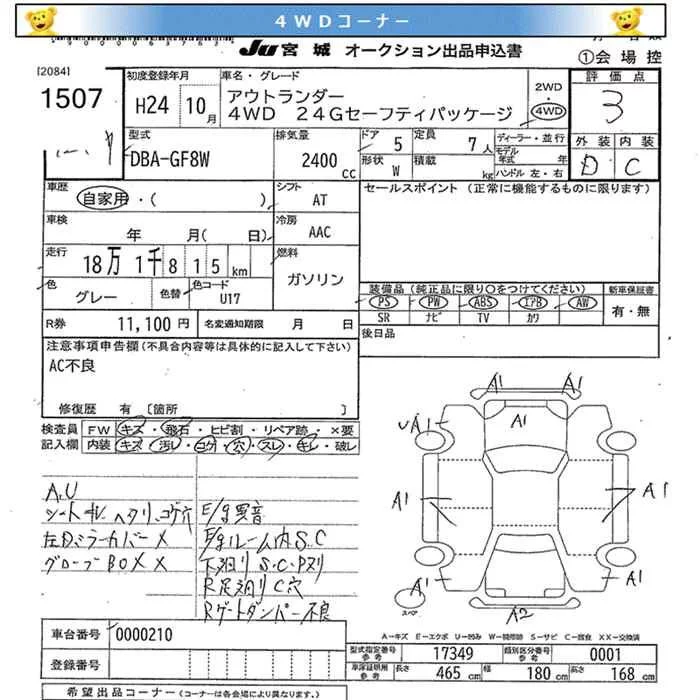 4WDコーナー
JU宮城 オークション出品申込書
①会場控
[2084]
1507
初度登録年月
H24 10月
車名・グレード
アウトランダー
4WD 24Gセーフティパッケージ
2WD
・
4WD
評価点
3
外装 内装
D C
型式
DBA-GF8W
排気量
2400
CC
ドア 5
定員 7人
形状 W
積載 kg
ディーラー・並行
モデル年式 年
ハンドル 左・右
車歴
自家用・( )
シフト
AT
セールスポイント (正常に機能するものに限ります)
車検
年 月( 日)
冷房
AAC
走行
18万 1千 8 1 5 km
燃料
ガソリン
色
グレー
色替
色コード
U17
装備品 (純正品に限り○をつけてください)
新車保証書
PS PW ABS エアB AW
SR ナビ TV カワ
有・無
R券 11,100 円
名変通知期限 月 日
後日品
注意事項申告欄 (不具合内容等は具体的に記入して下さい)
AC不良
修復歴 有 〔箇所 〕
検査員
記入欄
FW キズ・飛石・ヒビ割・リペア跡・×要
内装 キズ・汚レ・コゲ・穴・スレ・キレ・破レ
A.U
シートキレ ヘタリ、コゲ穴
左Dミラーカバー×
グローブBOX ×
E/g異音
E/gルーム内S.C
下廻りS・C・Pヌリ
R足廻りC穴
Rゲートダンパー不良
A1 A1
A1
UA1
A1
A1
A1
A1
A2
スペア
A−キズ E−エクボ U−凹み W−補修跡 S−サビ C−腐食 XX−交換済
車台番号 0000210
登録番号
型式指定番号
参考
17349
類別区分番号
参考
0001
車庫証明用
参考
長さ 465 cm 幅 180 cm 高さ 168 cm
希望出品コーナー (コーナーは各会場により異なります。)